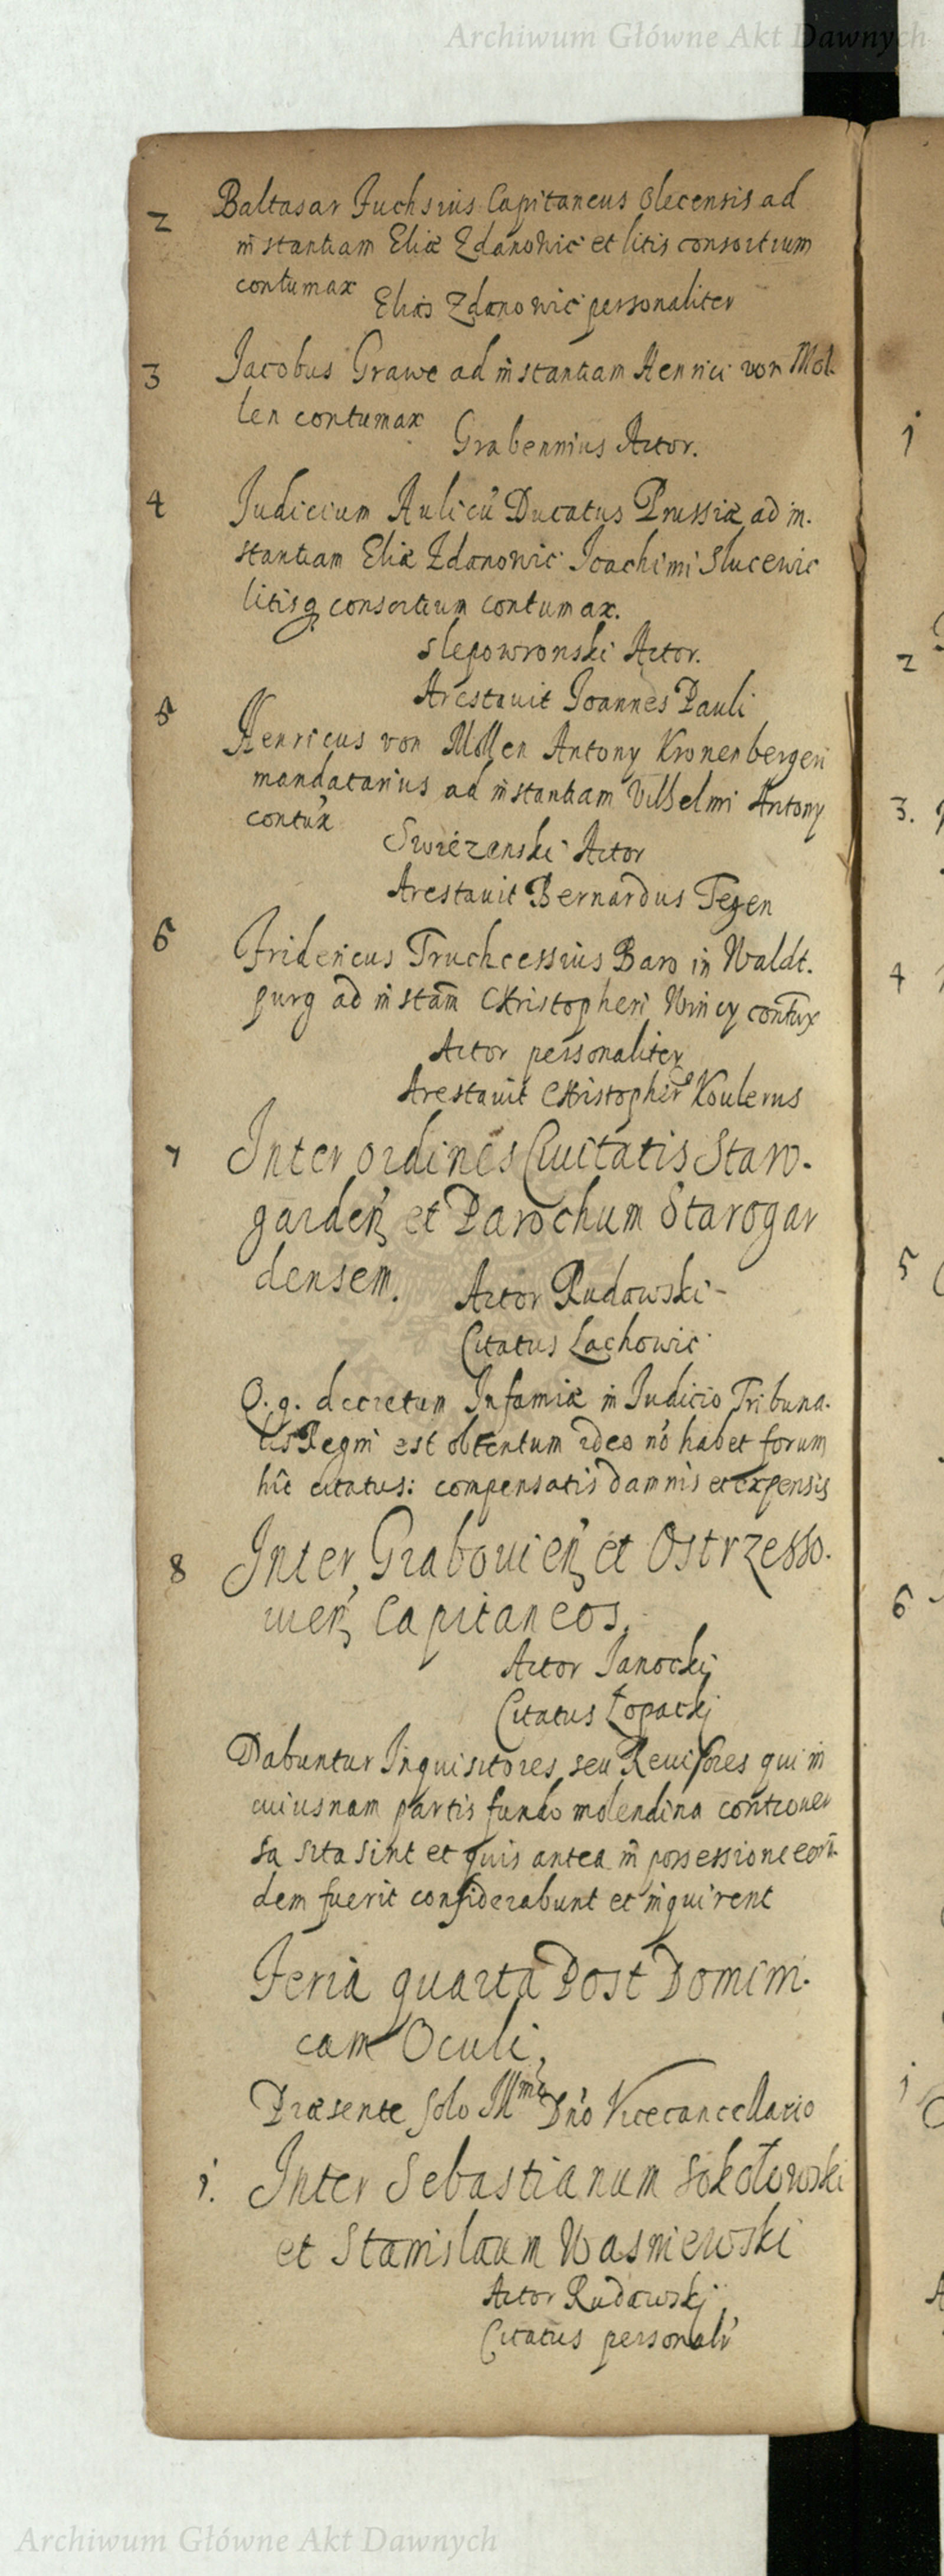 Archiwum Główne Akt Dawnych
2 Baltasar Fuchsius Capitaneus Olecensis ad
instantiam Eliæ Zdanowic et litis consortium
contumax
Elias Zdanowic personaliter
3 Jacobus Grawe ad instantiam Henrici von Mol-
len contumax
Grabennius Actor.
4 Judicium Aulicū Ducatus Prussiæ ad in-
stantiam Eliæ Zdanowic Joachimi Slucewic
litisq consortium contumax.
Slepowronski Actor.
Arestauit Joannes Pauli
5 Henricus von Mollen Antony Kronenbergeri
mandatarius ad instantiam Vilhelmi Antony
contux
Swiezenski Actor
Arestauit Bernardus Tegen
6 Fridericus Truchcessius Baro in Waldt-
purg ad instam Christopheri Wincy contux
Actor personaliter
Arestauit Christopher Koulerus
7 Inter ordines Ciuitatis Staro-
garden et Parochum Starogar
densem.
Actor Rudowski
Citatus Lachowic
Q. q. decretum Infamiæ in Judicio Tribuna-
lis Regni est obtentum ideo nō habet forum
hic citatus: compensatis damnis et expensis
8 Inter Grabouien et Ostrzesso-
uien Capitaneos.
Actor Janockij
Citatus Łopackj
Dabuntur Inquisitores seu Reuisores qui in
cuiusnam partis fundo molendina controuer
sa sita sint et quis antea in possessione eorū-
dem fuerit considerabunt et inquirent
Feria quarta Post Domini-
cam Oculi.
Præsente solo Illmo Dno Vicecancellario
1. Inter Sebastianum Sokołowski
et Stanislaum Wasniewski
Actor Rudawskj
Citatus personalr
1
2
3.
4
5
6
1
Archiwum Główne Akt Dawnych